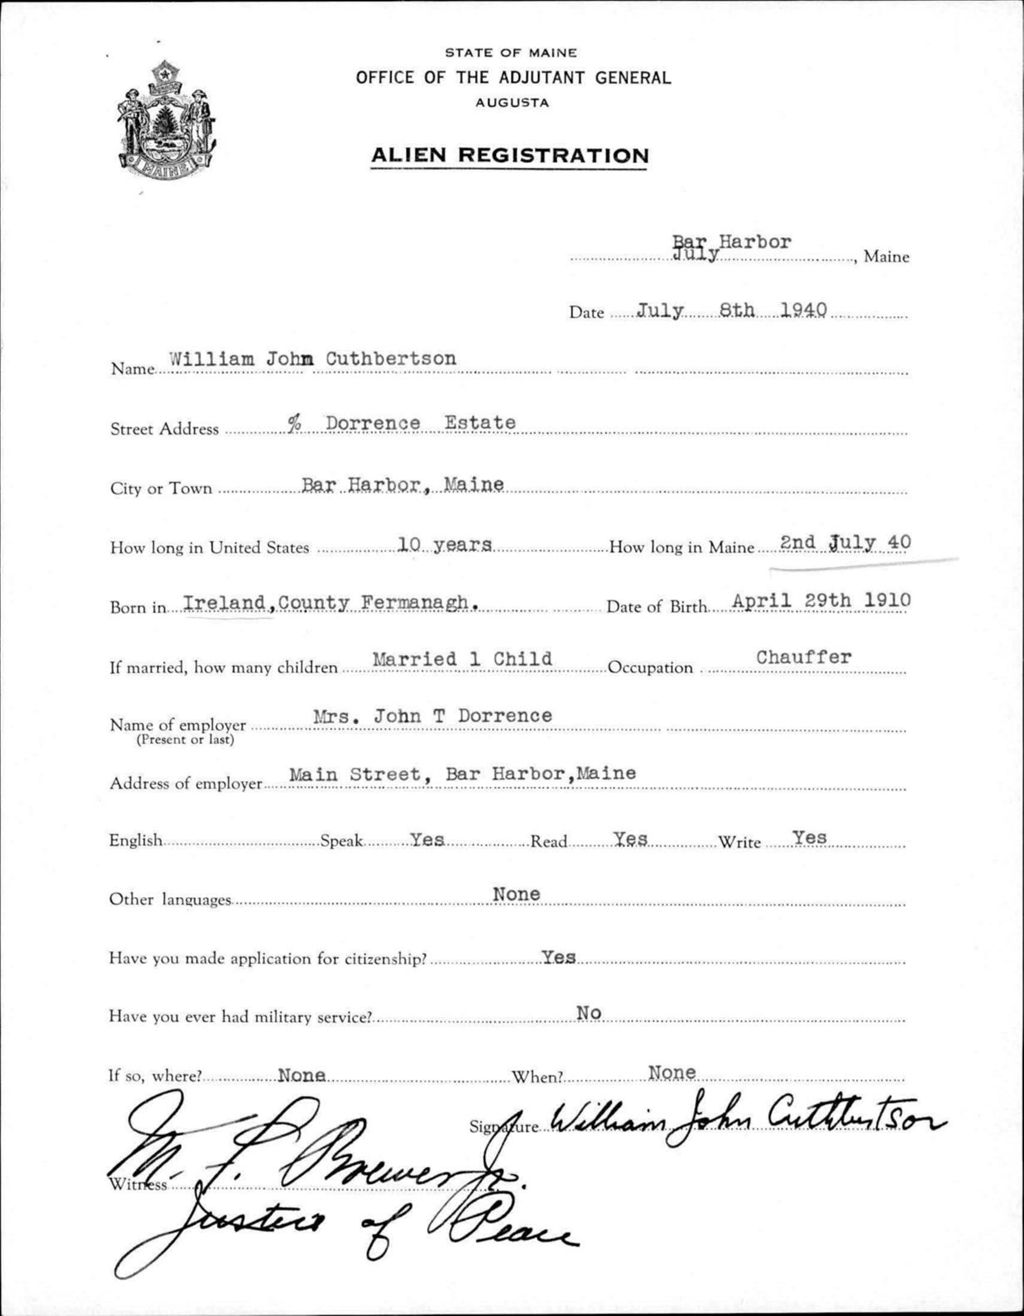 STATE OF MAINE
OFFICE OF THE ADJUTANT GENERAL
AUGUSTA
ALIEN REGISTRATION
MAINE
Bar Harbor
July, Maine
Date July 8th 1940
Name William John Cuthbertson
Street Address % Dorrence Estate
City or Town Bar Harbor, Maine
How long in United States 10 years How long in Maine 2nd July 40
Born in Ireland, County Fermanagh. Date of Birth April 29th 1910
If married, how many children Married 1 Child Occupation Chauffer
Name of employer Mrs. John T Dorrence
(Present or last)
Address of employer Main Street, Bar Harbor,Maine
English Speak Yes Read Yes Write Yes
Other languages None
Have you made application for citizenship? Yes
Have you ever had military service? No
If so, where? None When? None
Signature William John Cuthbertson
Witness M. F. Brewer Jr.
Justice of Peace